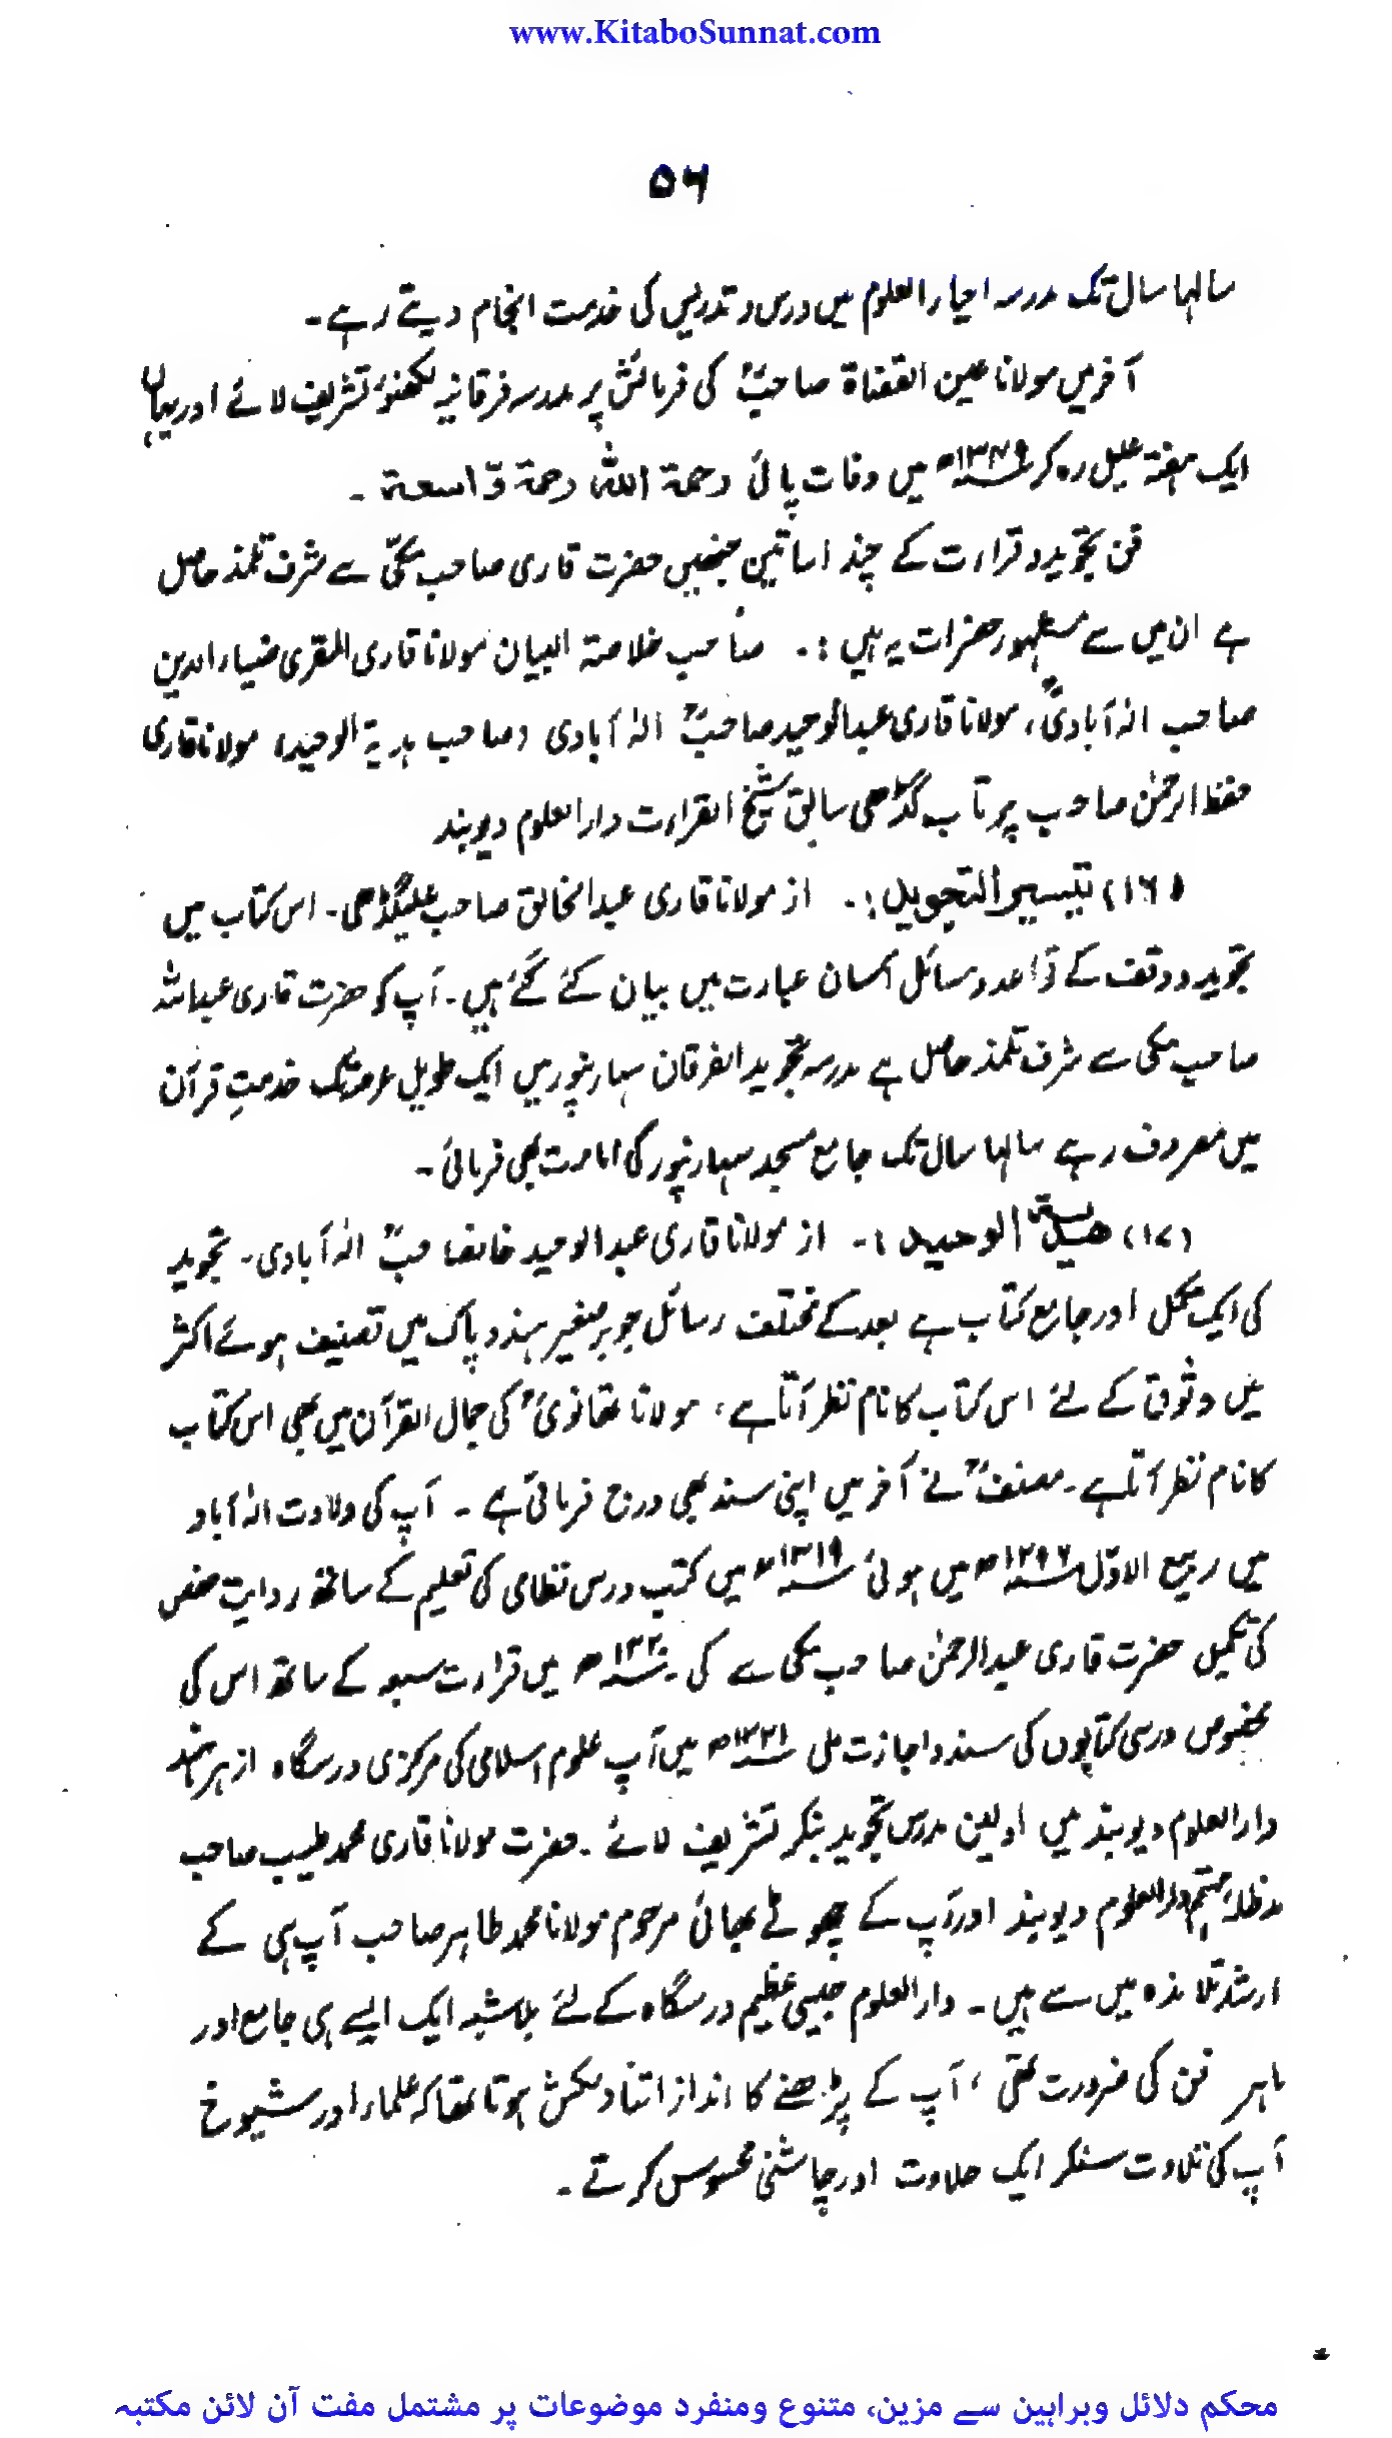 www.KitaboSunnat.com
۵۶
سالہا سال تک مدرسہ احیاء العلوم میں درس و تدریس کی خدمت انجام دیتے رہے۔
آخر میں مولانا عین القضاة صاحبؒ کی فرمائش پر مدرسہ فرقانیہ لکھنؤ تشریف لائے اور یہاں
ایک ہفتہ علیل رہ کر ۱۳۴۹ھ میں وفات پائی رحمۃ اللہ رحمۃ وّاسعۃ ۔
فن تجوید و قراءت کے چند اساتین جنھیں حضرت قاری صاحب مکّی سے شرف تلمذ حاصل
ہے ان میں سے مشہور حضرات یہ ہیں :۔ صاحب خلاصۃ البیان مولانا قاری المقری ضیاء الدین
صاحب الہٰ آبادیؒ، مولانا قاری عبدالوحید صاحبؒ الہٰ آبادی (صاحب ہدیۃ الوحید) مولانا قاری
حفظ الرحمٰن صاحب پرتاب گڈھی سابق شیخ القراءت دارالعلوم دیوبند
(۱۶) تیسیر التجوید :۔ از مولانا قاری عبدالخالق صاحب علیگڈھی۔ اس کتاب میں
تجوید و وقف کے قواعد و مسائل آسان عبارت میں بیان کئے گئے ہیں۔ آپ کو حضرت قاری عبداللہ
صاحب مکی سے شرف تلمذ حاصل ہے مدرسہ تجوید الفرقان سہارنپور میں ایک طویل عرصہ تک خدمتِ قرآن
میں مصروف رہے سالہا سال تک جامع مسجد سہارنپور کی امامت بھی فرمائی ۔
(۱۷) ھدیۃ الوحید :۔ از مولانا قاری عبدالوحید خانصاحبؒ الہٰ آبادی۔ تجوید
کی ایک مکمل اور جامع کتاب ہے بعد کے مختلف رسائل جو برصغیر ہند و پاک میں تصنیف ہوئے اکثر
میں وثوق کے لئے اس کتاب کا نام نظر آتا ہے، مولانا تھانویؒ کی جمال القرآن میں بھی اس کتاب
کا نام نظر آتا ہے۔ مصنفؒ نے آخر میں اپنی سند بھی درج فرمائی ہے ۔ آپ کی ولادت الہٰ آباد
میں ربیع الاوّل ۱۲۹۶ھ میں ہوئی ۱۳۱۹ھ میں کتب درس نظامی کی تعلیم کے ساتھ روایت حفص
کی تکمیل حضرت قاری عبدالرحمٰن صاحب مکی سے کی ۔ ۱۳۲۰ھ میں قراءت سبعہ کے ساتھ اس کی
مخصوص درسی کتابوں کی سند و اجازت ملی ۱۳۲۱ھ میں آپ علوم اسلامی کی مرکزی درسگاہ ازہر ہند
دارالعلوم دیوبند میں اولین مدرس تجوید بنکر تشریف لائے ۔ حضرت مولانا قاری محمد طیب صاحب
مدظلہ، مہتمم دارالعلوم دیوبند اور آپ کے چھوٹے بھائی مرحوم مولانا محمد طاہر صاحب آپ ہی کے
ارشد تلامذہ میں سے ہیں ۔ دارالعلوم جیسی عظیم درسگاہ کے لئے بلاشبہ ایک ایسے ہی جامع اور
ماہر فن کی ضرورت تھی ، آپ کے پڑھنے کا انداز اتنا دلکش ہوتا تھا کہ علماء اور شیوخ
آپ کی تلاوت سنکر ایک حلاوت اور چاشنی محسوس کرتے ۔
محکم دلائل وبراہین سے مزین، متنوع ومنفرد موضوعات پر مشتمل مفت آن لائن مکتبہ